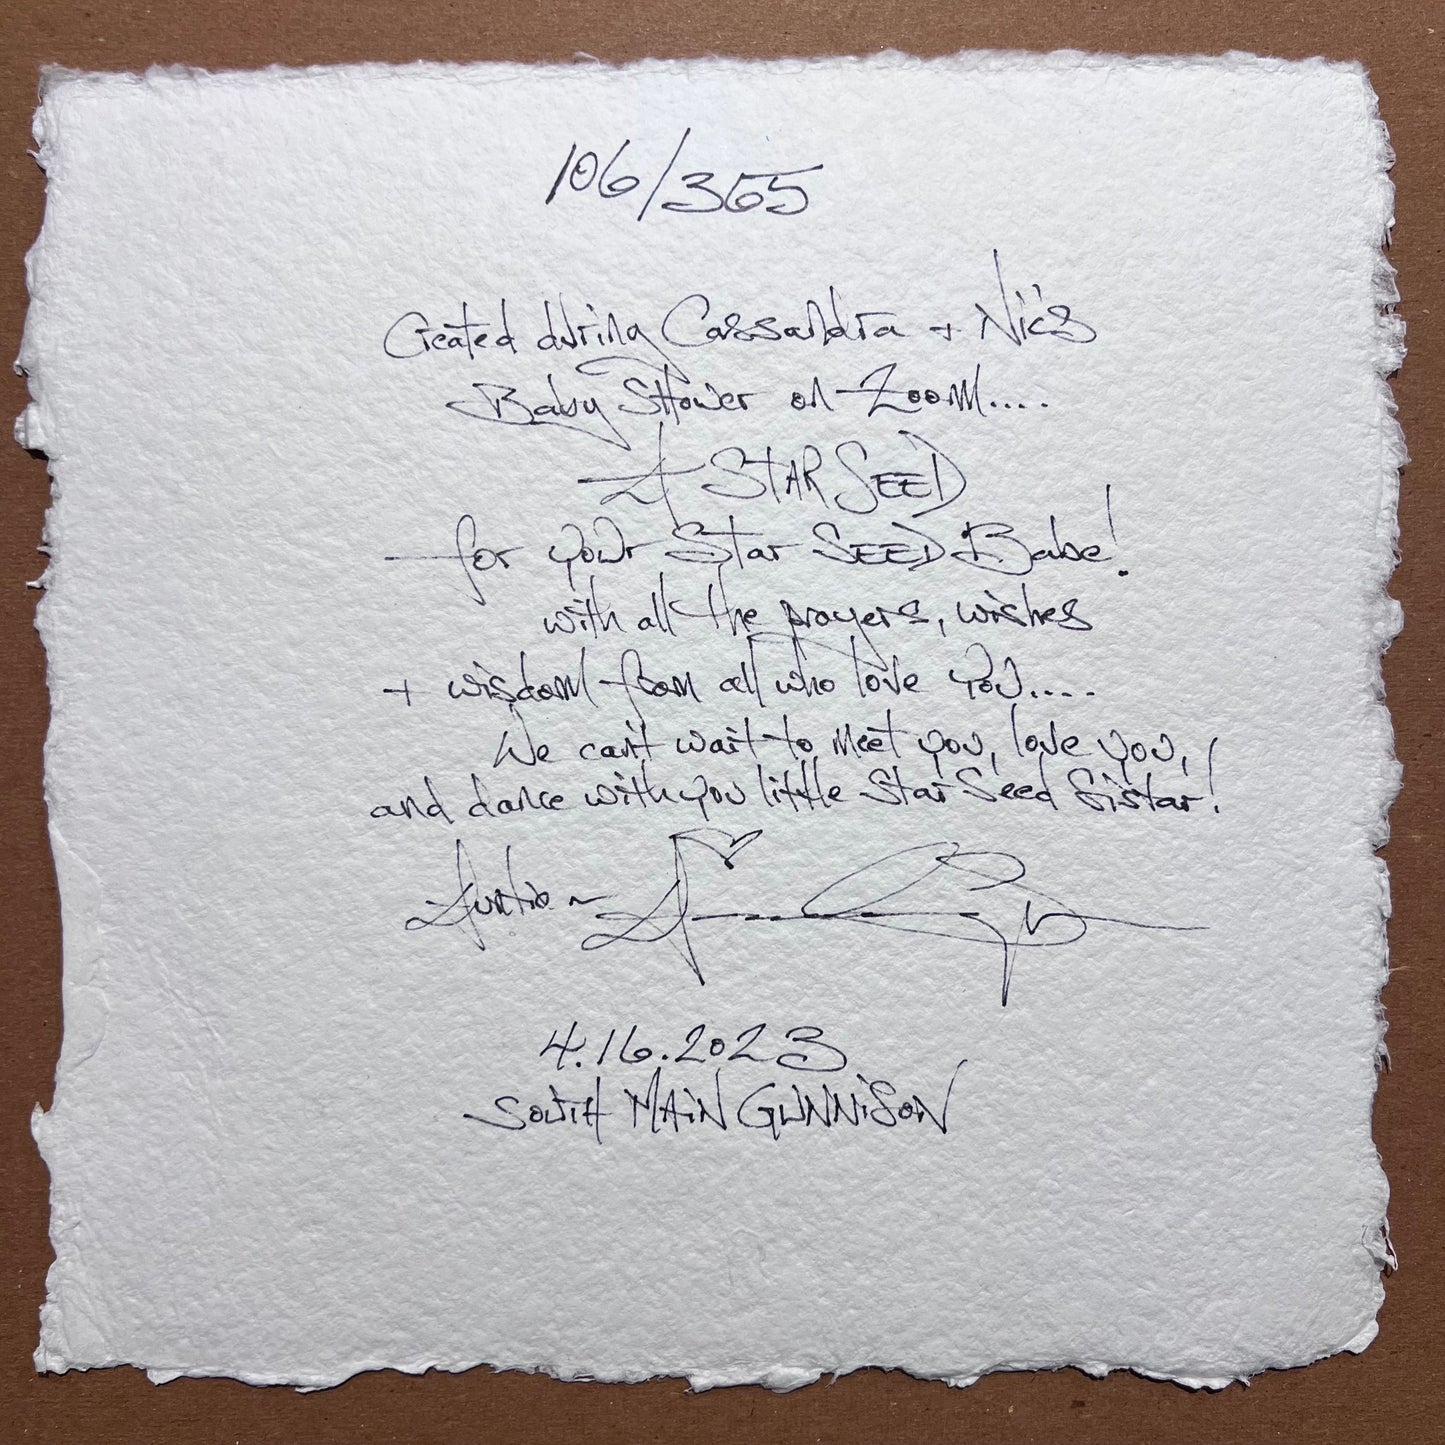 106/365
Created during Cassandra + Nic's
Baby Shower on Zoom....
A STAR SEED
for your Star SEED Babe!
with all the prayers, wishes
+ wisdom from all who love you....
We can't wait to meet you, love you,
and dance with you little Star Seed Sistar!
4.16.2023
SOUTH MAIN GUNNISON